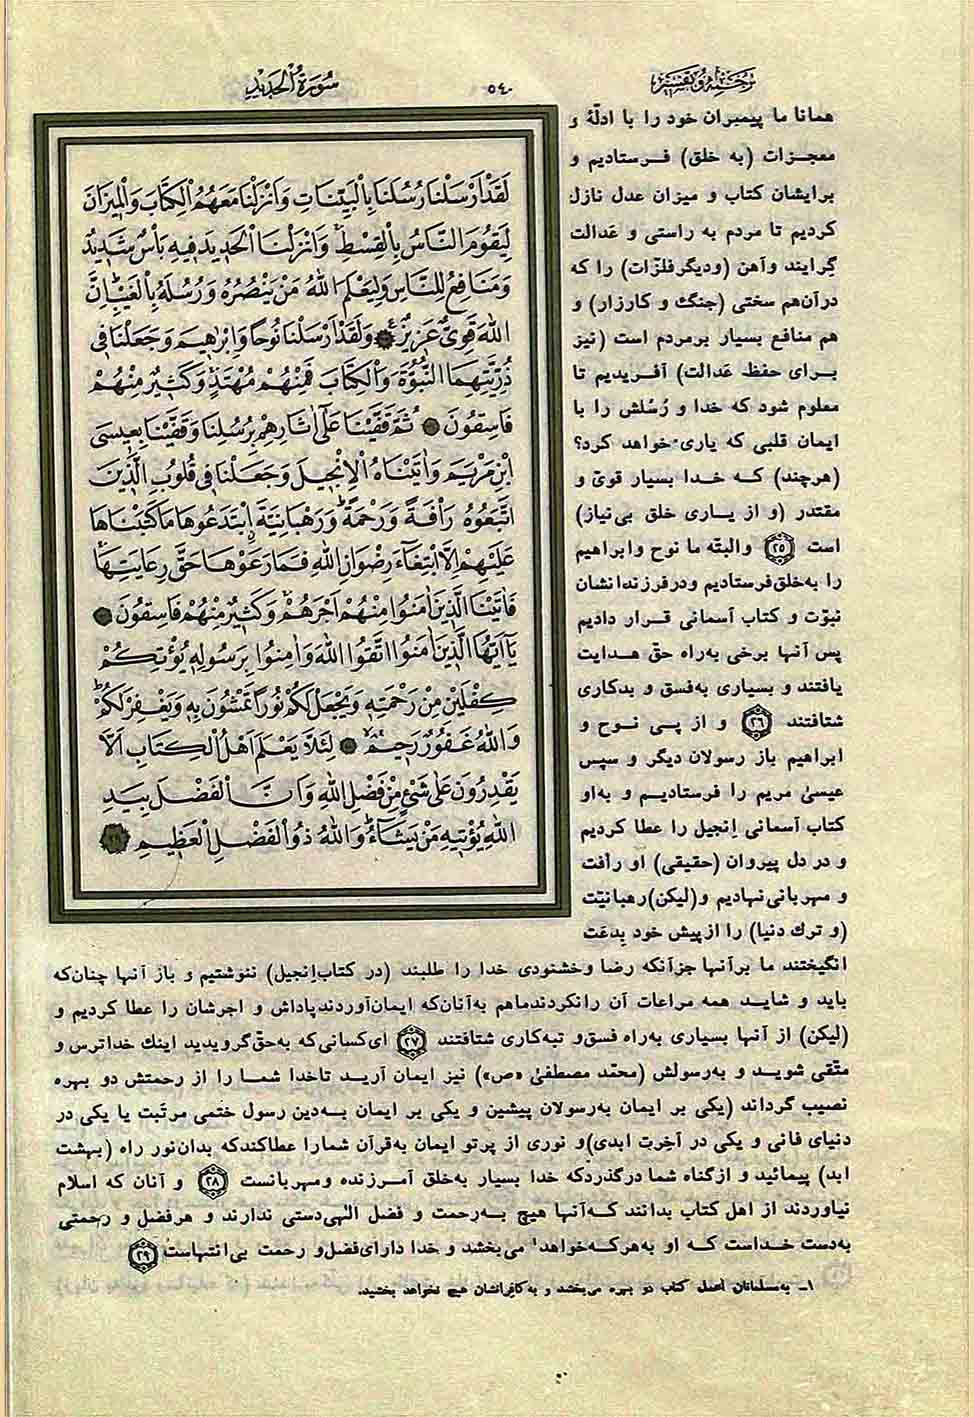 ترجمه و تفسیر
٥٤٠
سُورَةُ الْحَدِيدِ
لَقَدْ اَرْسَلْنَا رُسُلَنَا بِالْبَيِّنَاتِ وَاَنْزَلْنَا مَعَهُمُ الْكِتَابَ وَالْمِيزَانَ
لِيَقُومَ النَّاسُ بِالْقِسْطِ وَاَنْزَلْنَا الْحَدِيدَ فِيهِ بَأْسٌ شَدِيدٌ
وَمَنَافِعُ لِلنَّاسِ وَلِيَعْلَمَ اللهُ مَنْ يَنْصُرُهُ وَرُسُلَهُ بِالْغَيْبِ اِنَّ
اللهَ قَوِيٌّ عَزِيزٌ وَلَقَدْ اَرْسَلْنَا نُوحًا وَاِبْرٰهِيمَ وَجَعَلْنَا فِي
ذُرِّيَّتِهِمَا النُّبُوَّةَ وَالْكِتَابَ فَمِنْهُمْ مُهْتَدٍ وَكَثِيرٌ مِنْهُمْ
فَاسِقُونَ ثُمَّ قَفَّيْنَا عَلٰٓى اٰثَارِهِمْ بِرُسُلِنَا وَقَفَّيْنَا بِعِيسَى
ابْنِ مَرْيَمَ وَاٰتَيْنَاهُ الْاِنْجِيلَ وَجَعَلْنَا فِي قُلُوبِ الَّذِينَ
اتَّبَعُوهُ رَاْفَةً وَرَحْمَةً وَرَهْبَانِيَّةً اِبْتَدَعُوهَا مَا كَتَبْنَاهَا
عَلَيْهِمْ اِلَّا ابْتِغَآءَ رِضْوَانِ اللهِ فَمَا رَعَوْهَا حَقَّ رِعَايَتِهَا
فَاٰتَيْنَا الَّذِينَ اٰمَنُوا مِنْهُمْ اَجْرَهُمْ وَكَثِيرٌ مِنْهُمْ فَاسِقُونَ
يَآ اَيُّهَا الَّذِينَ اٰمَنُوا اتَّقُوا اللهَ وَاٰمِنُوا بِرَسُولِهِ يُؤْتِكُمْ
كِفْلَيْنِ مِنْ رَحْمَتِهِ وَيَجْعَلْ لَكُمْ نُورًا تَمْشُونَ بِهِ وَيَغْفِرْ لَكُمْ
وَاللهُ غَفُورٌ رَحِيمٌ لِئَلَّا يَعْلَمَ اَهْلُ الْكِتَابِ اَلَّا
يَقْدِرُونَ عَلٰى شَيْءٍ مِنْ فَضْلِ اللهِ وَاَنَّ الْفَضْلَ بِيَدِ
اللهِ يُؤْتِيهِ مَنْ يَشَآءُ وَاللهُ ذُو الْفَضْلِ الْعَظِيمِ
همانا ما پیمبران خود را با ادلّهٔ و
معجزات (به خلق) فرستادیم و
برایشان کتاب و میزان عدل نازل
کردیم تا مردم به راستی و عَدالت
گِرایند وآهن (ودیگر فلزّات) را که
درآن‌هم سختی (جنگ و کارزار) و
هم منافع بسیار برمردم است (نیز
برای حفظ عَدالت) آفریدیم تا
معلوم شود که خدا و رُسُلش را با
ایمان قلبی که یاری خواهد کرد؟
(هرچند) که خدا بسیار قویّ و
مقتدر (و از یاری خلق بی‌نیاز)
است ٢٥ والبتّه ما نوح وابراهیم
را به‌خلق‌فرستادیم ودرفرزندانشان
نبوّت و کتاب آسمانی قرار دادیم
پس آنها برخی به‌راه حقّ هدایت
یافتند و بسیاری به‌فسق و بدکاری
شتافتند ٢٦ و از پی نوح و
ابراهیم باز رسولان دیگر و سپس
عیسیٰ مریم را فرستادیم و به‌او
کتاب آسمانی اِنجیل را عطا کردیم
و در دل پیروان (حقیقی) او رأفت
و مهربانی‌نهادیم و(لیکن)رهبانیّت
(و ترك دنیا) را ازپیش خود بِدعَت
انگیختند ما برآنها جزآنکه رضا وخشنودی خدا را طلبند (در کتاب‌اِنجیل) ننوشتیم و باز آنها چنان‌که
باید و شاید همه مراعات آن رانکردندماهم به‌آنان‌که ایمان‌آوردندپاداش و اجرشان را عطا کردیم و
(لیکن) از آنها بسیاری به‌راه فسق‌و تبه‌کاری شتافتند ٢٧ ای‌کسانی‌که به‌حقّ‌گرویدید اینك خداترس و
متّقی شوید و به‌رسولش (محمّد مصطفیٰ «ص») نیز ایمان آرید تاخدا شما را از رحمتش دو بهره
نصیب گرداند (یکی بر ایمان به‌رسولان پیشین و یکی بر ایمان به‌دین رسول ختمی مرتَبت یا یکی در
دنیای فانی و یکی در آخِرت ابدی)و نوری از پرتو ایمان به‌قرآن شمارا عطاکندکه بدان‌نور راه (بهشت
ابد) پیمائید و ازگناه شما درگذردکه خدا بسیار به‌خلق آمرزنده ومهربانست ٢٨ و آنان که اسلام
نیاوردند از اهل کتاب بدانند که‌آنها هیچ به‌رحمت و فضل الٰهی‌دستی ندارند و هرفضل و رحمتی
به‌دست خداست که او به‌هرکه‌خواهد۱ می‌بخشد و خدا دارای‌فضل‌و رحمت بی‌انتهاست ٢٩
۱ــ به‌مسلمانان اهل کتاب دو بهره می‌بخشد و به‌کافرانشان هیچ نخواهد بخشید.